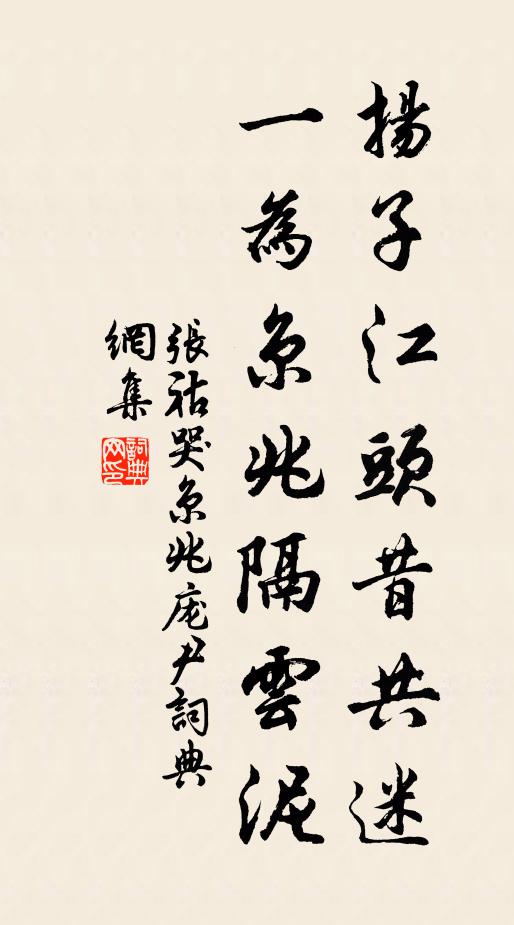 揚子江頭昔共迷
一為京兆隔雲泥
張祜哭京兆庞尹詞典
網集
詞典
网印